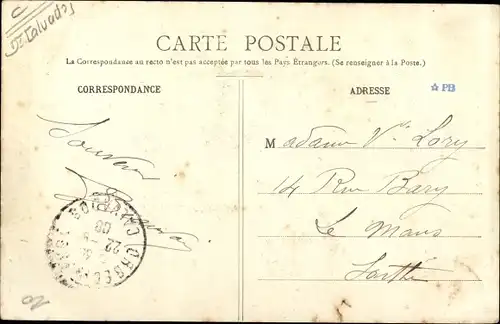 Dt Calvados
CARTE POSTALE
La Correspondance au recto n'est pas acceptée par tous les Pays Étrangers. (Se renseigner à la Poste.)
CORRESPONDANCE
ADRESSE
☆ PB
Souvenir
M adame Vve Lory
14 Rue Bary
Le Mans
Sarthe
ORBEC
CALVADOS
22
08
10